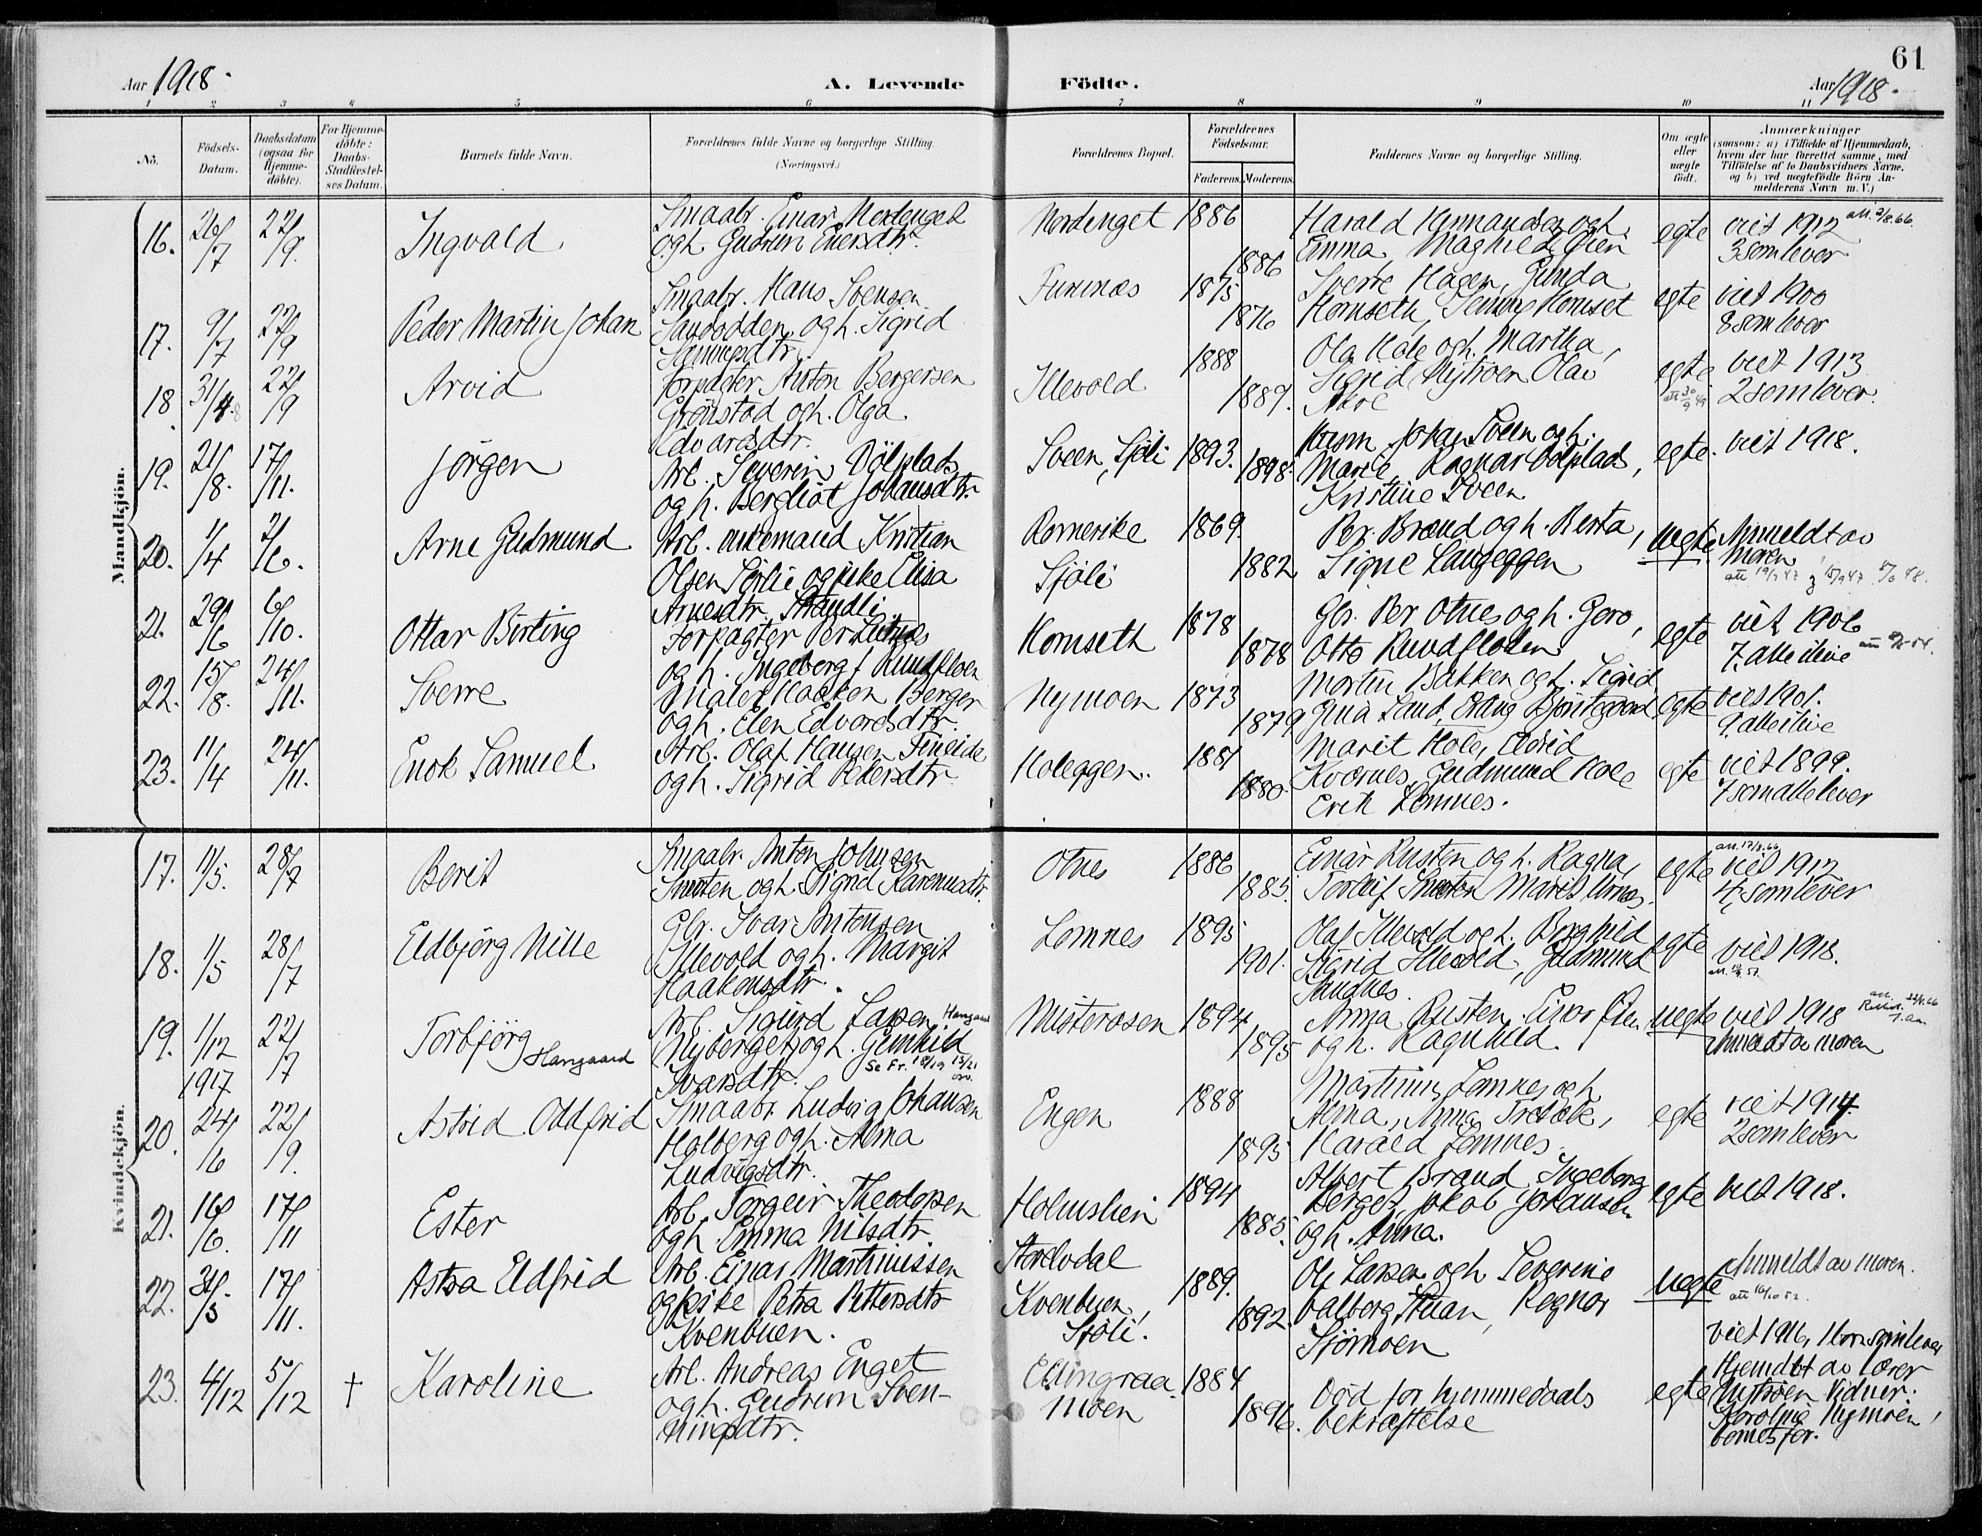 61
Aar 1918.
A. Levende Födte.
Aar 1918.
1 2 3 4 5 6 7 8 9 10 11
No.
Födsels-Datum.
Daabsdatum (ogsaa for Hjemme-döbte).
For Hjemme-döbte: Daabs-Stadfæstel-ses Datum.
Barnets fulde Navn.
Forældrenes fulde Navne og borgerlige Stilling. (Næringsvei.)
Forældrenes Bopæl.
Forældrenes Födselsaar.
Faderens. Moderens.
Faddernes Navne og borgerlige Stilling.
Om ægte eller uægte födt.
Anmærkninger
(saasom: a) i Tilfælde af Hjemmedaab, hvem der har forrettet samme, med Tilföielse af to Daabsvidners Navne, og b) ved uægtefödte Börn An-melderens Navn m. V.)
Mandkjön.
16. 26/7 22/9. Ingvald
Smaabr. Einar Nordenget
og h. Gudrun Einersdtr.
Nordenget 1886 1886
Harald Amundsen og h.
Emma, Magnhild Øien
egte
viet 1912
3 som lever
17. 9/7 22/9 Peder Martin Johan
Smaabr. Hans Svensen
Sandodden og h. Sigrid
Furunes 1875 1876
Sverre Hagen, Gunda
Komseth, Jenny Komset
egte
viet 1900
8 som lever
18. 31/ 22/9 Arvid
Forpagter Anton Bergersen
Grönstad og h. Olga
Edvardsdtr.
Illevold 1888 1887.
Ola Hole og h. Martha,
Sigrid Nytrøen Olav
egte
viet 1913
2 som lever.
19. 21/8. 17/11. Jörgen
Arb. Severin Völplads
og h. Bergliot Johansdtr.
Sveen, Sjöli 1893. 1898.
Husm. Johan Sveen og h.
Marie, Ragnar Völplads,
Kristine Sveen
egte.
viet 1918.
20. 1/4 2/6. Arne Gudmund
Arb. enkemand Kristian
Olsen Sörlie og pike Elisa
Arnesdtr. Strandli
Romerike Sjöli 1869. 1882
Per Brænd og h. Berta,
Signe Langeggen
uegte
Anmeldt av
moren
21. 29/6 6/10. Ottar Birting
Forpagter Per Lutnæs
og h. Ingeborg f. Rundfloen
Komseth 1878 1878
Gbr. Per Otnes og h. Gero,
Otto Rundfloen
egte
viet 1906
7, alle ilive
22. 15/8. 24/11. Sverre
Maler Haaken Berger
og h. Elen Edvardsdtr.
Nymoen 1873 1879
Martin Bakken og h. Sigrid
Gina Sand, Erling Björntegaard
egte
viet 1901.
9 alle ilive
23. 11/4 24/11. Enok Samuel
Arb. Olaf Hansen Fineide
og h. Sigrid Pedersdtr.
Holeggen. 1881 1880
Marit Hole, Eldrid
Kværnes, Gudmund Hole
Erik Lomnes.
egte
viet 1899.
7 som alle lever
Kvindekjön.
17. 11/5. 28/7 Berit
Smaabr. Anton Johnsen
Snerten og h. Sigrid Karenusdtr.
Otnes 1886 1885.
Einar Rusten og h. Ragna,
Torleif Snerten Marit Urnes.
egte
viet 1912
4, som lever
18. 1/5 28/7 Eldbjörg Nille
Gbr. Ivar Antonsen
Illevold og h. Margit
Haakonsdtr.
Lomnes 1895 1901.
Olaf Illevold og h. Borghild
Sigrid Illevold, Gudmund
Sandnes.
egte
viet 1918.
19. 1/12 1917 22/7 Torbjörg Haugaard
Arb. Sigurd Larsen Haugaard
Nyberget og h. Gunhild
Ivarsdtr.
Misterosen 1894 1895
Anna Rusten. Eivor Øien
og h. Ragnhild.
uegte
viet 1918
Anmeldt av moren
20. 24/6 22/9. Astrid Oddfrid
Smaabr. Ludvig Johansen
Holberg og h. Alma
Ludvigsdtr.
Engen 1888 1895
Martinus Lomnes og h.
Alma, Anna Trebæk,
Harald Lomnes.
egte
viet 1914
2 som lever
21. 16/6. 17/11 Ester
Arb. Torgeir Theodorsen
og h. Emma Nilsdtr.
Holmslien 1894 1885.
Albert Brænd, Ingeborg
Berget, Jakob Johansen
og h. Anna.
egte
viet 1918.
22. 31/3 17/11. Astra Eldfrid
Arb. Einar Martinussen
og pike Petra Pettersdtr
Kvenbuen.
Stordvodal
Kvenbuen, Sjöli. 1889. 1892.
Ole Larsen og h. Severine
Valborg Stuan, Regnor
Sjömoen
uegte
Anmeldt av moren.
23. 4/12 5/12 † Karoline
Arb. Andreas Enget
og h. Gudrun Sven-
ningsdtr.
Ellingraa moen 1884 1896.
Död for hjemmedaabs
bekræftelse
egte
viet 1916, 1 barn som lever
Hjemdöbt av lærer
Nytröen. Vidner:
Karoline Nymoen,